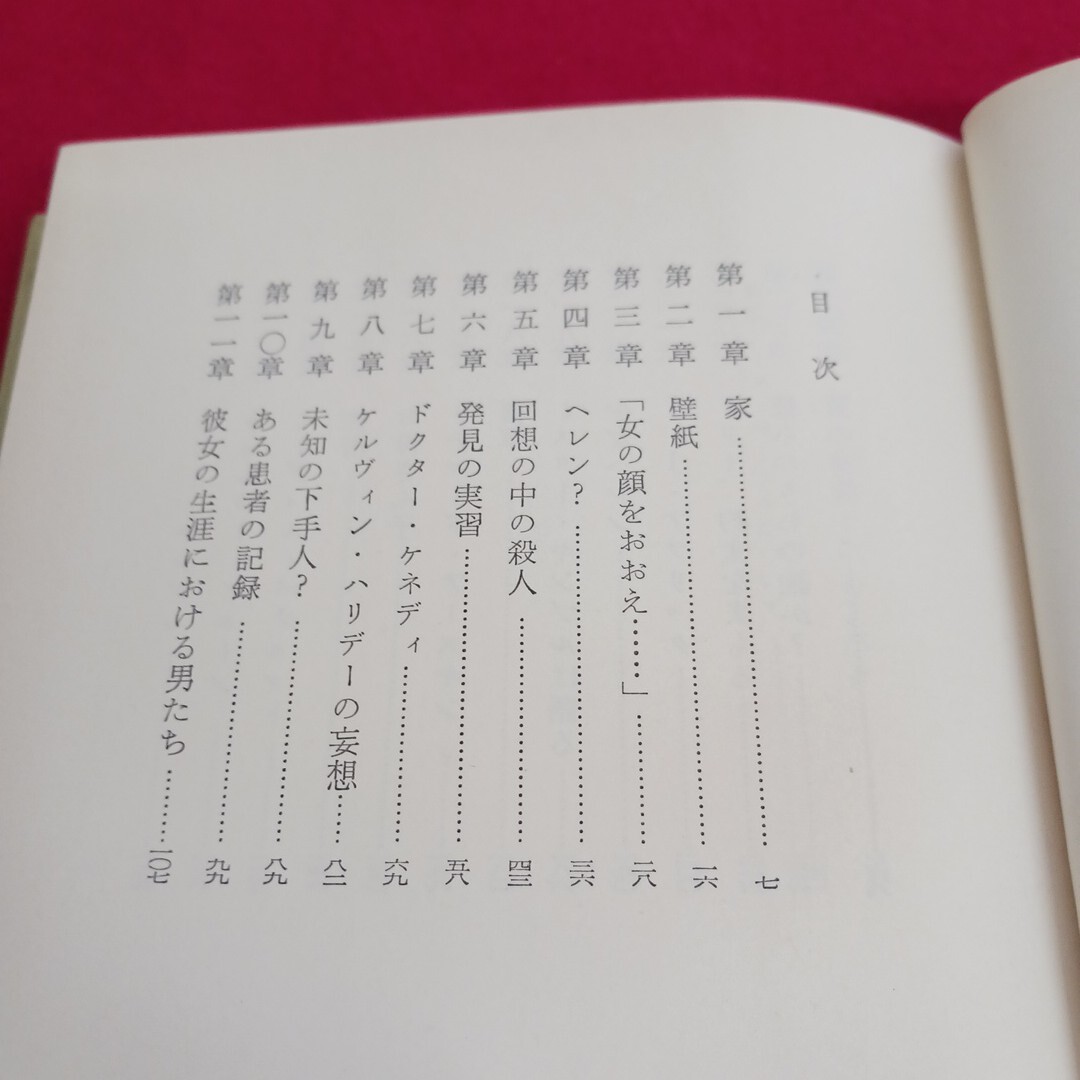 目次
第一章 家…………………………七
第二章 壁紙…………………………一六
第三章 「女の顔をおおえ……」…………二八
第四章 ヘレン?…………………………三六
第五章 回想の中の殺人…………………四三
第六章 発見の実習…………………………五八
第七章 ドクター・ケネディ………………六九
第八章 ケルヴィン・ハリデーの妄想……八二
第九章 未知の下手人?…………………八九
第一〇章 ある患者の記録…………………九九
第一一章 彼女の生涯における男たち………一〇七